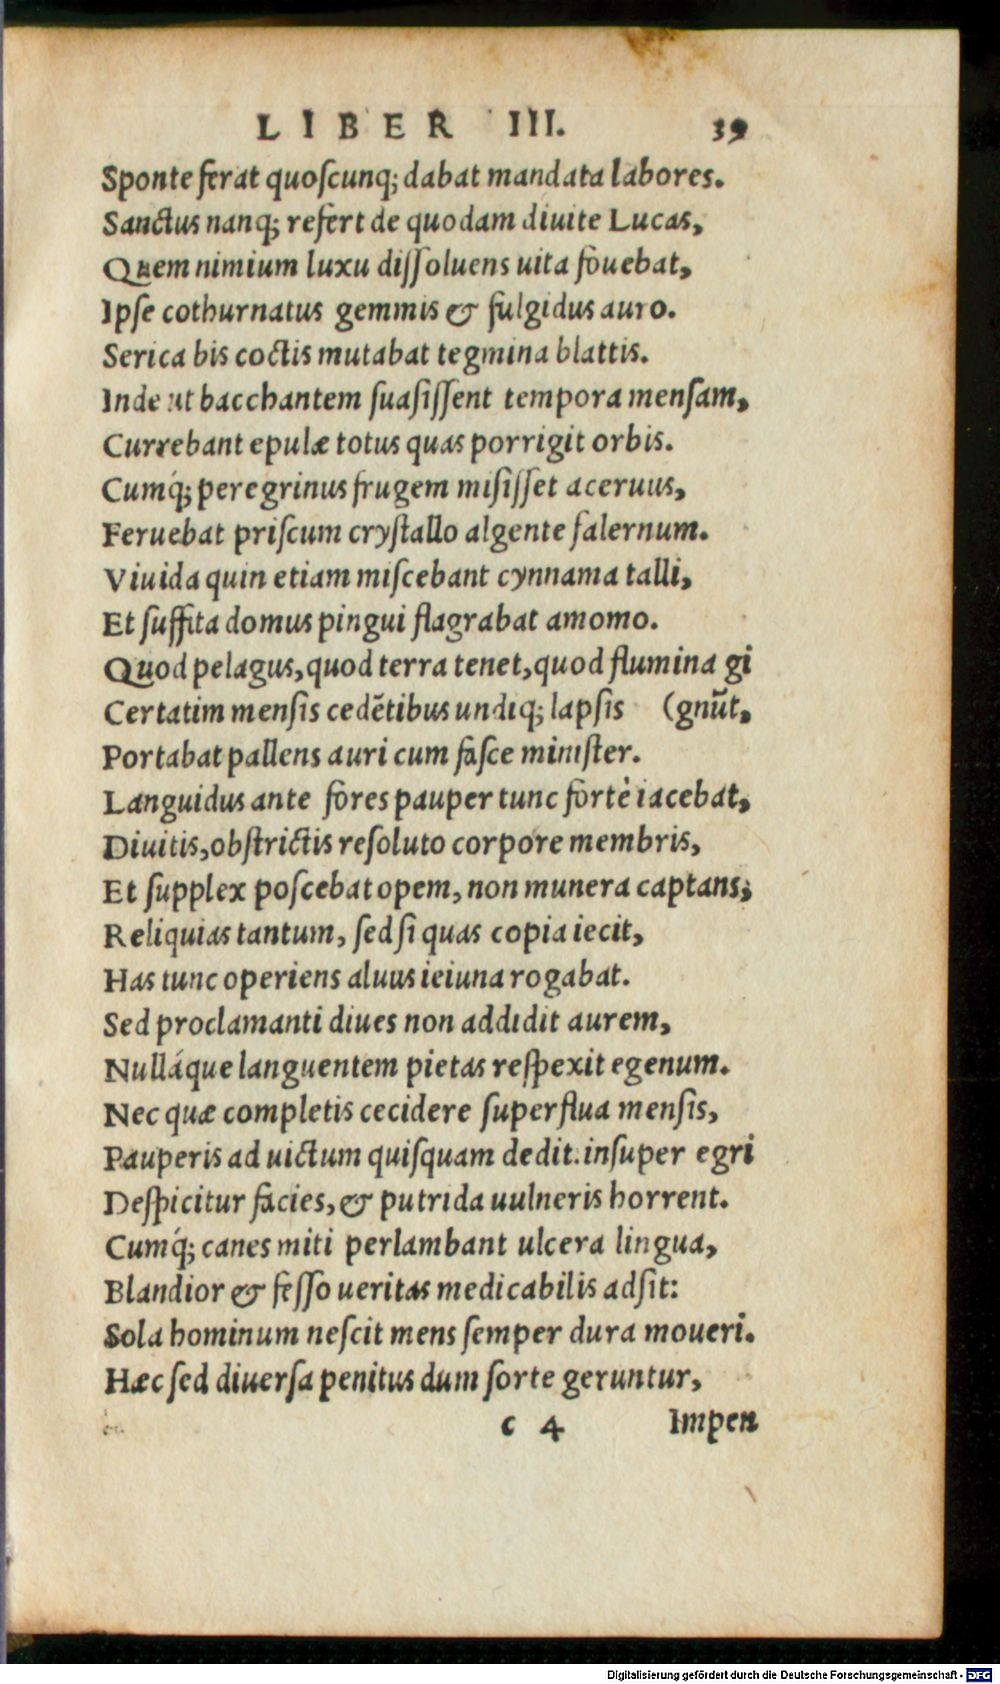 LIBER III. 39
Sponte ferat quoſcunq; dabat mandata labores.
Sanctus nanq; refert de quodam diuite Lucas,
Quem nimium luxu diſſoluens uita fouebat,
Ipſe cothurnatus gemmis & fulgidus auro.
Serica bis coctis mutabat tegmina blattis.
Inde ut bacchantem ſuaſiſſent tempora menſam,
Currebant epulæ totus quas porrigit orbis.
Cumq́; peregrinus frugem miſiſſet aceruus,
Feruebat priſcum cryſtallo algente falernum.
Viuida quin etiam miſcebant cynnama talli,
Et ſuffita domus pingui flagrabat amomo.
Quod pelagus, quod terra tenet, quod flumina gi
Certatim menſis cedẽtibus undiq; lapſis (gnũt,
Portabat pallens auri cum faſce miniſter.
Languidus ante fores pauper tunc fortè iacebat,
Diuitis, obſtrictis reſoluto corpore membris,
Et ſupplex poſcebat opem, non munera captans;
Reliquias tantum, ſed ſi quas copia iecit,
Has tunc operiens aluus ieiuna rogabat.
Sed proclamanti diues non addidit aurem,
Nulláque languentem pietas reſpexit egenum.
Nec quæ completis cecidere ſuperflua menſis,
Pauperis ad uictum quiſquam dedit. inſuper egri
Deſpicitur facies, & putrida uulneris horrent.
Cumq́; canes miti perlambant ulcera lingua,
Blandior & feſſo ueritas medicabilis adſit:
Sola hominum neſcit mens ſemper dura moueri.
Hæc ſed diuerſa penitus dum ſorte geruntur,
c 4 Impen
Digitalisierung gefördert durch die Deutsche Forschungsgemeinschaft - DFG